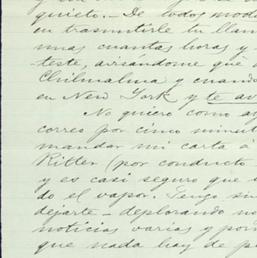 quieto. De todos mod
en trasmitirle tu llam
unas cuantas horas y
teste, avisandome que
Chilmalma y cuand
en New York y te av
No quiero como ay
correo por cinco minut
mandar mi carta á
Ritter (por conducto
y es casi seguro que
do el vapor. Tengo sin
dejarte - deplorando no
noticias varias y por
que nada hay de p